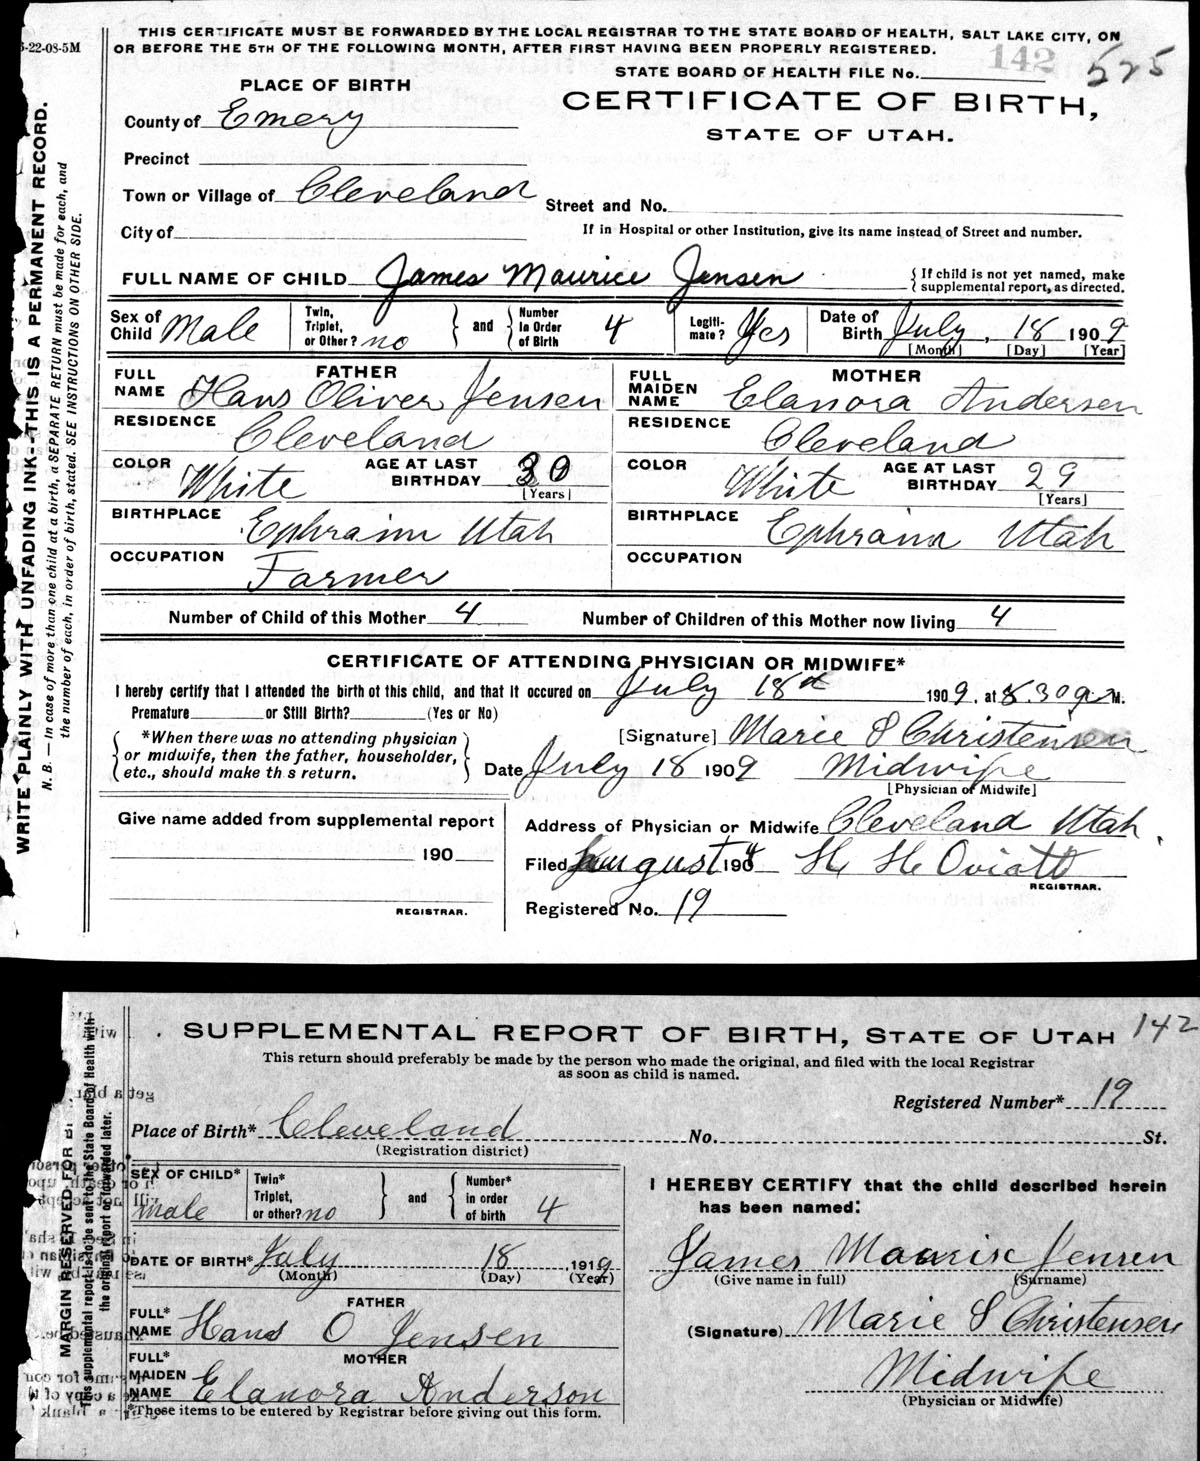 5-22-08-5M
THIS CERTIFICATE MUST BE FORWARDED BY THE LOCAL REGISTRAR TO THE STATE BOARD OF HEALTH, SALT LAKE CITY, ON
OR BEFORE THE 5TH OF THE FOLLOWING MONTH, AFTER FIRST HAVING BEEN PROPERLY REGISTERED.
STATE BOARD OF HEALTH FILE No. 142 525
PLACE OF BIRTH
CERTIFICATE OF BIRTH,
STATE OF UTAH.
County of Emery
Precinct
Town or Village of Cleveland
Street and No.
City of
If in Hospital or other Institution, give its name instead of Street and number.
FULL NAME OF CHILD James Maurice Jensen { If child is not yet named, make
supplemental report, as directed.
Sex of Child Male Twin, Triplet, or Other? no } and { Number in Order of Birth 4 Legitimate? Yes Date of Birth July, 18 1909
[Month] [Day] [Year]
FATHER MOTHER
FULL NAME Hans Oliver Jensen FULL MAIDEN NAME Elanora Andersen
RESIDENCE Cleveland RESIDENCE Cleveland
COLOR White AGE AT LAST BIRTHDAY 30 [Years] COLOR White AGE AT LAST BIRTHDAY 29 [Years]
BIRTHPLACE Ephraim Utah BIRTHPLACE Ephraim Utah
OCCUPATION Farmer OCCUPATION
Number of Child of this Mother 4 Number of Children of this Mother now living 4
CERTIFICATE OF ATTENDING PHYSICIAN OR MIDWIFE*
I hereby certify that I attended the birth of this child, and that it occured on July 18 1909, at 8.30 M.
Premature or Still Birth? (Yes or No)
*When there was no attending physician
or midwife, then the father, householder,
etc., should make th s return.
[Signature] Marie S Christensen
Date July 18 1909 Midwife
[Physician or Midwife]
Give name added from supplemental report
190
REGISTRAR.
Address of Physician or Midwife Cleveland Utah.
Filed August 190 H H Oviatt
REGISTRAR.
Registered No. 19
WRITE PLAINLY WITH UNFADING INK—THIS IS A PERMANENT RECORD.
N. B.—In case of more than one child at a birth, a SEPARATE RETURN must be made for each, and
the number of each, in order of birth, stated. SEE INSTRUCTIONS ON OTHER SIDE.
SUPPLEMENTAL REPORT OF BIRTH, STATE OF UTAH 142
This return should preferably be made by the person who made the original, and filed with the local Registrar
as soon as child is named.
Registered Number* 19
Place of Birth* Cleveland No. St.
(Registration district)
SEX OF CHILD* male Twin* Triplet, or other? no } and { Number* in order of birth 4
DATE OF BIRTH* July 18 1919
(Month) (Day) (Year)
FATHER
FULL* NAME Hans O Jensen
MOTHER
FULL* MAIDEN NAME Elanora Anderson
*These items to be entered by Registrar before giving out this form.
I HEREBY CERTIFY that the child described herein
has been named:
James Jensen
(Give name in full) (Surname)
(Signature) Marie S Christensen
Midwife
(Physician or Midwife)
MARGIN RESERVED FOR
This supplemental report is to be sent to the State Board of Health with
the original report or forwarded later.